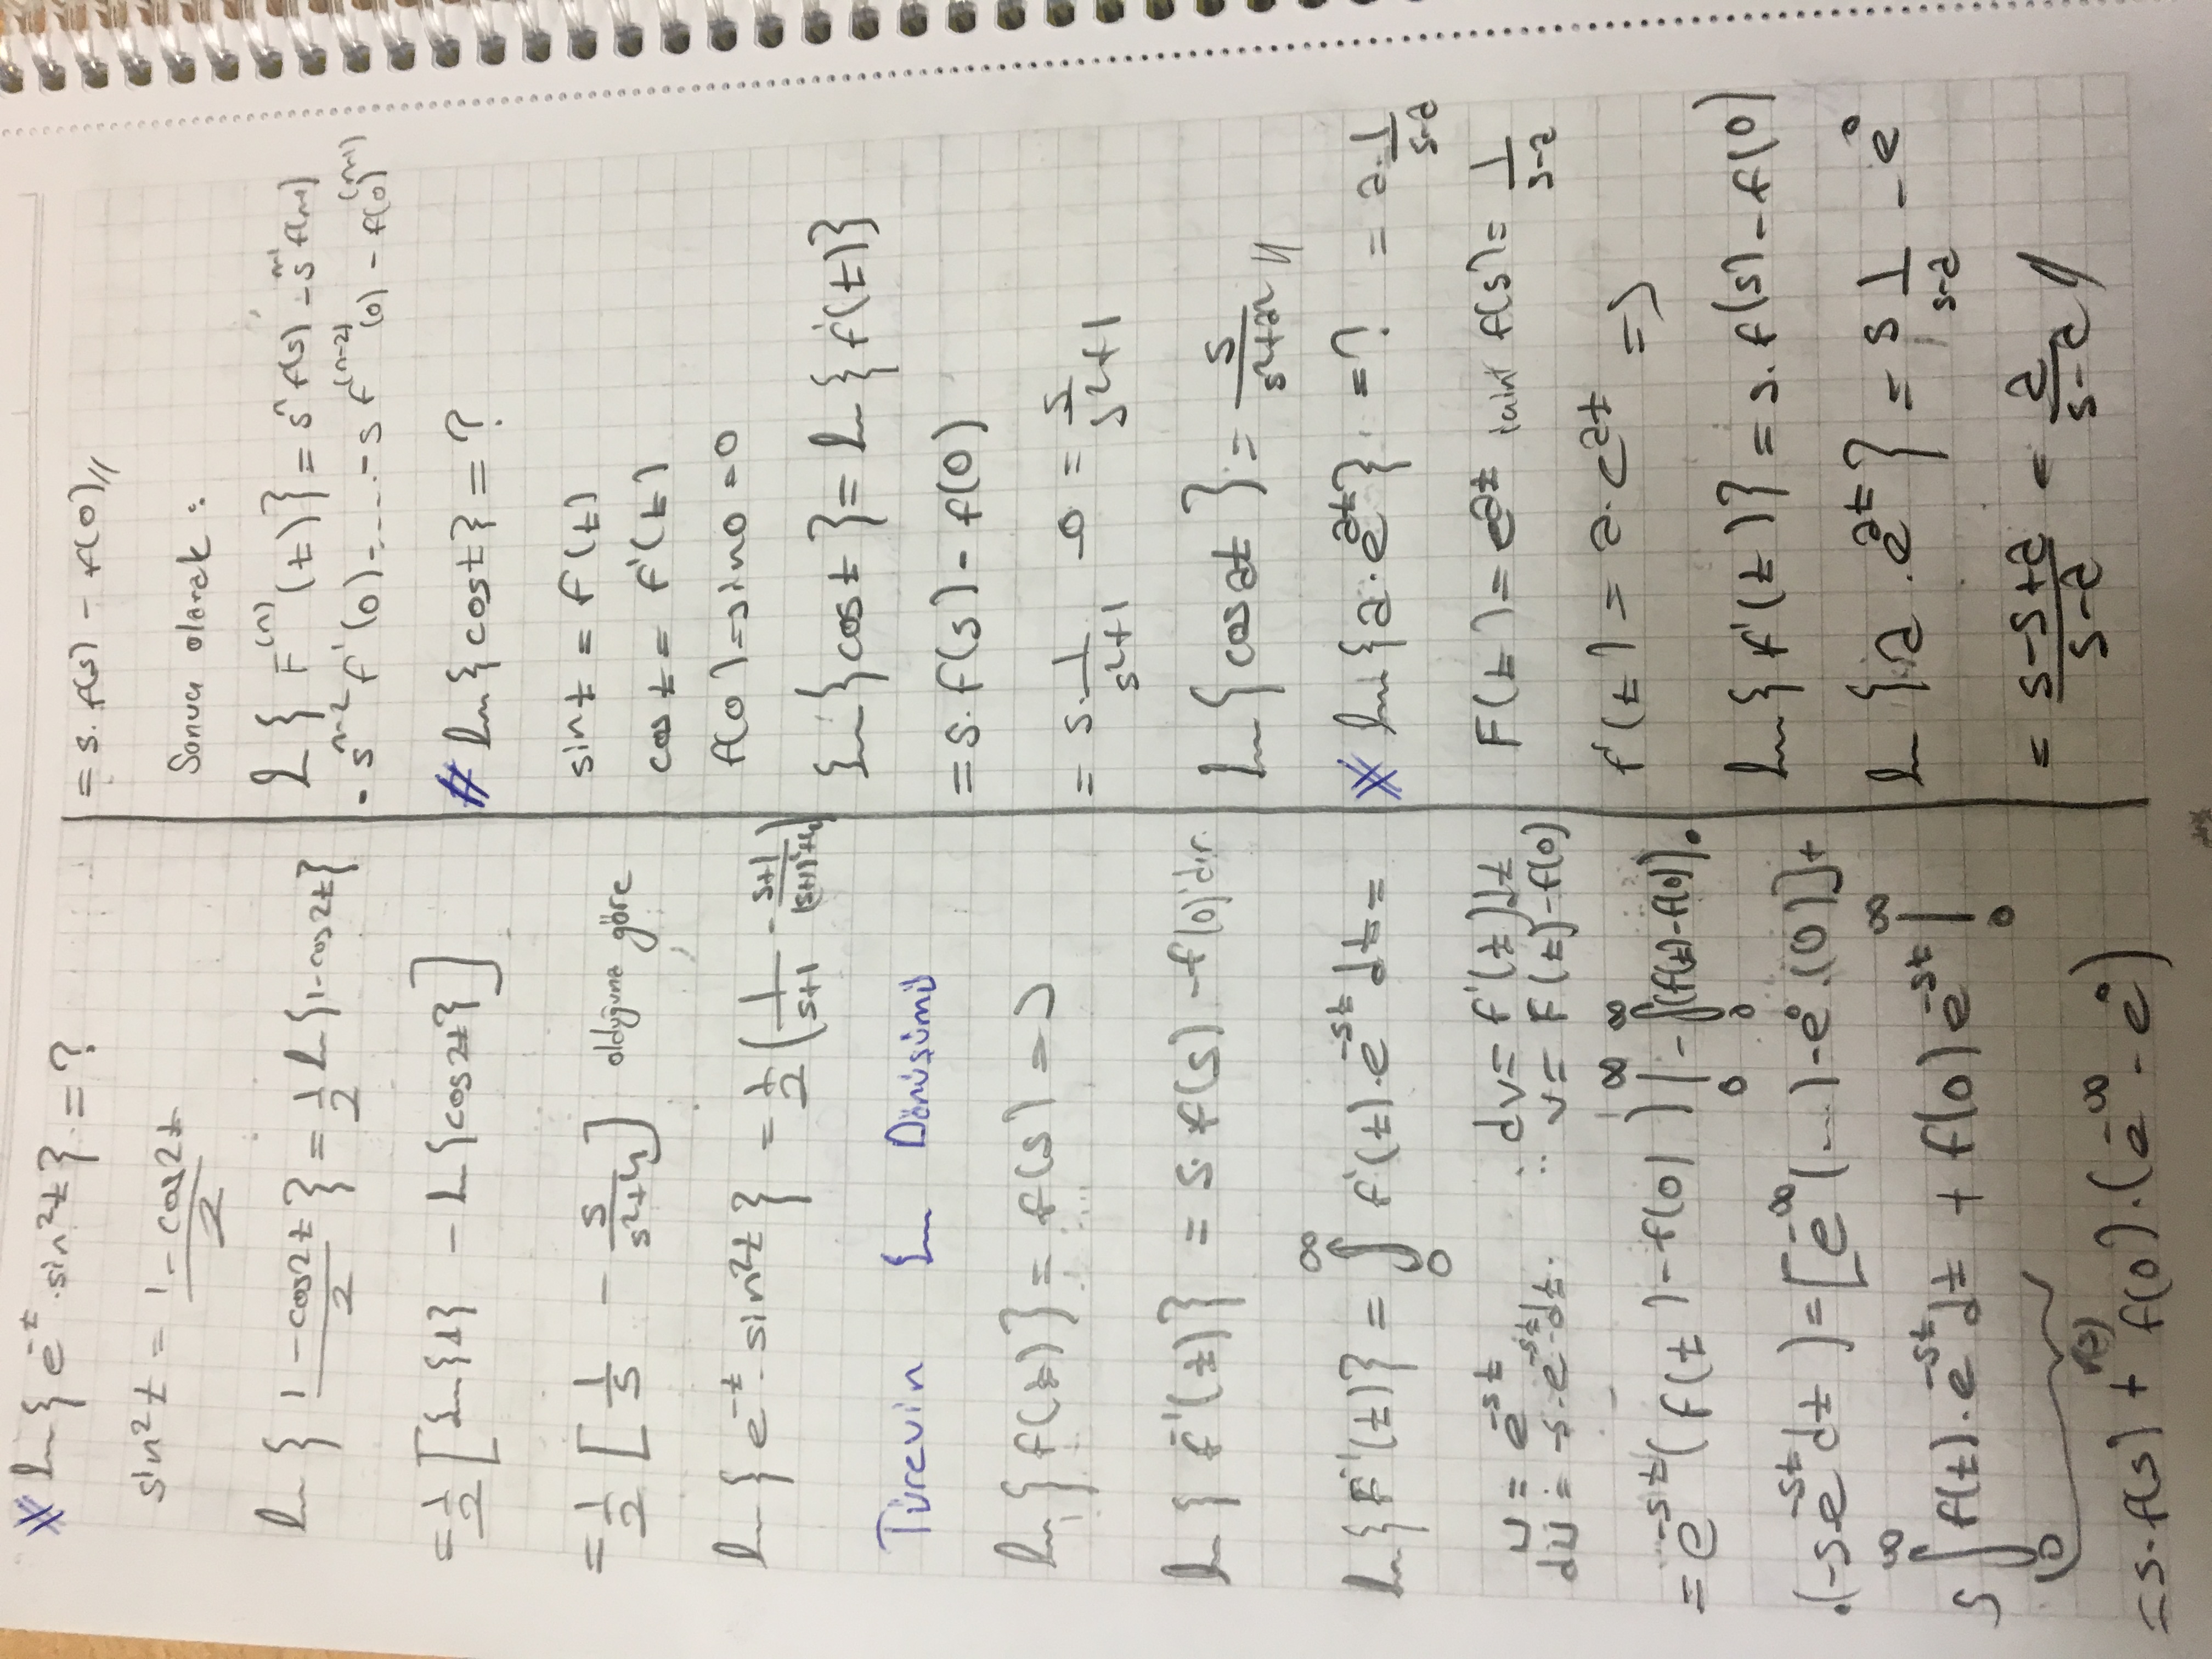 ℒ{e^-t . sin²t} = ?
sin²t = (1 - cos2t)/2
ℒ{(1 - cos2t)/2} = 1/2 ℒ{1-cos2t}
= 1/2 [ℒ{1} - ℒ{cos2t}]
= 1/2 [1/s - s/(s²+4)] olduğuna göre
ℒ{e^-t . sin²t} = 1/2 (1/(s+1) - (s+1)/((s+1)²+4))
Türevin ℒ Dönüşümü
ℒ{f(t)} = f(s) =>
ℒ{F'(t)} = s. f(s) - f(0)'dır.
ℒ{F'(t)} = ∫₀^∞ f'(t).e^-st dt =
u = e^-st dv = f'(t)dt
du = -s.e^-st.dt. v = F(t)-f(0)
= e^-st (f(t) - f(0))|₀^∞ - ∫₀^∞ (f(t)-f(0)).
.(-s.e^-st dt) = [e^-∞ (...) - e⁰.(0)] +
s ∫₀^∞ f(t).e^-st dt + f(0) e^-st |₀^∞
f(s)
= s.f(s) + f(0).(e^-∞ - e⁰)
= s. f(s) - f(0)//
Sonuc olarak :
ℒ{F^(n)(t)} = s^n f(s) - s^n-1
- s^n-2 f'(0) - .... - s F^(n-2)(0) - f(0)^(n-1)
# ℒ{cost} = ?
sint = F(t)
cost = F'(t)
f(0) = sin0 = 0
ℒ{cost} = ℒ{f'(t)}
= s. f(s) - f(0)
= s. 1/(s²+1) - 0 = s/(s²+1)
ℒ{cosat} = s/(s²+a²) //
ℒ{a.e^at} = ? = a. 1/(s-a)
F(t) = e^at için f(s) = 1/(s-a)
f'(t) = a.e^at =>
ℒ{f'(t)} = s. f(s) - f(0)
ℒ{a.e^at} = s 1/(s-a) - e⁰
= (s-s+a)/(s-a) = a/(s-a) //